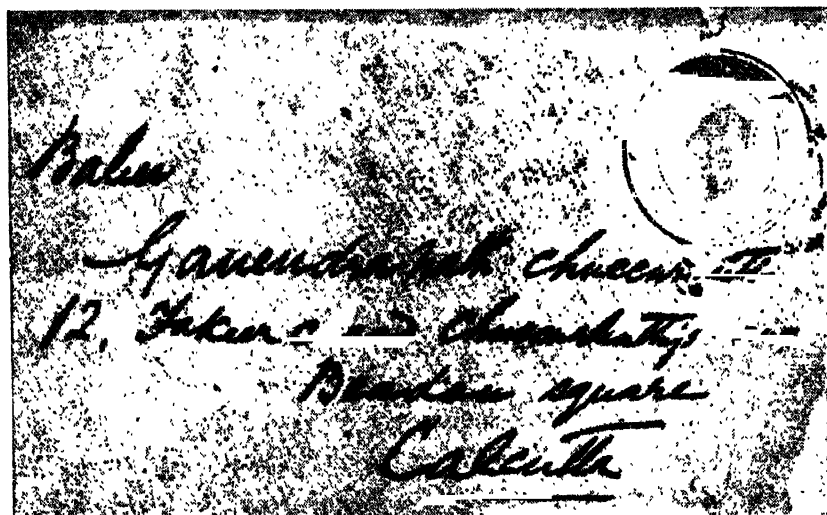 Babu
Ganendranath Chuccar
12, Fakur Chuckerbathy's
Beadon square
Calcutta